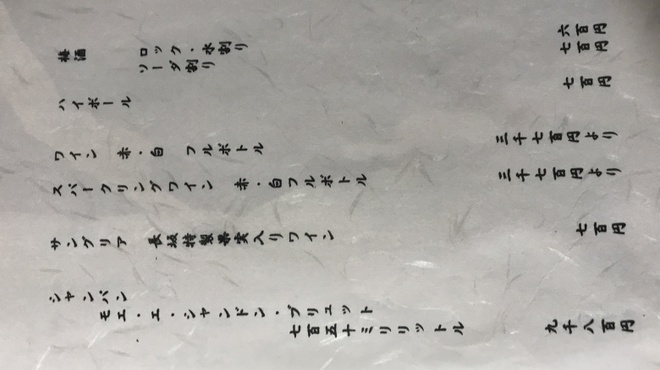 梅酒 ロック・水割り 六百円
ソーダ割り 七百円
ハイボール 七百円
ワイン 赤・白 フルボトル 三千七百円より
スパークリングワイン 赤・白フルボトル 三千七百円より
サングリア 長坂特製果実入りワイン 七百円
シャンパン
モエ・エ・シャンドン・ブリュット
七百五十ミリリットル 九千八百円